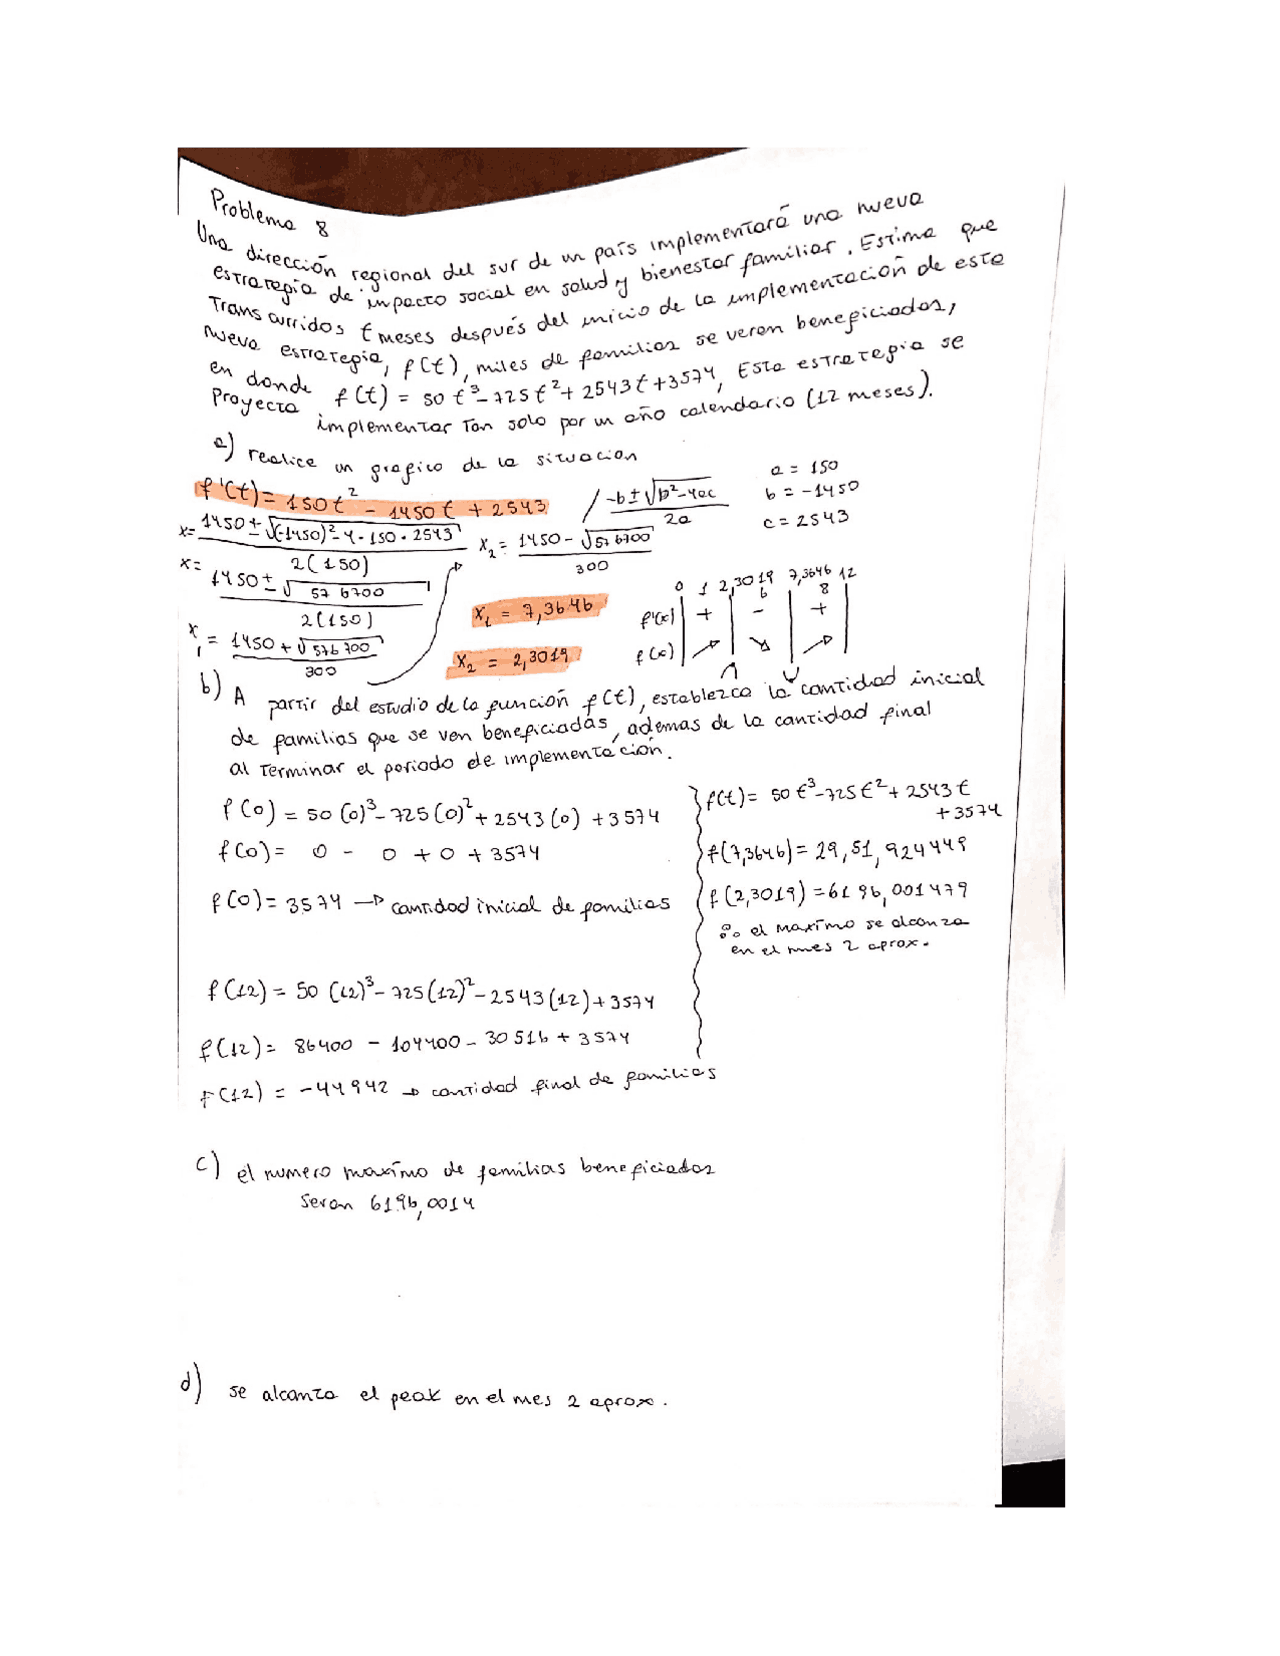 Problema 8
Una dirección regional del sur de un país implementará una nueva
estrategia de impacto social en salud y bienestar familiar. Estima que
Transcurridos t meses después del inicio de la implementación de esta
nueva estrategia, f(t), miles de familias se veran beneficiadas,
en donde f(t) = 50t³-725t²+2543t+3574, Esta estrategia se
Proyecta implementar Tan solo por un año calendario (12 meses).
a) realice un grafico de la situacion
f'(t) = 150t² - 1450t + 2543 / -b±√b²-4ac / 2a
a = 150
b = -1450
c = 2543
x= 1450±√(-1450)²-4·150·2543 / 2(150)
x= 1450±√576700 / 2(150)
x₁ = 1450+√576700 / 300
x₂ = 1450-√576700 / 300
x₁ = 7,3646
x₂ = 2,3019
0 1 2,3019 6 7,3646 8 12
f'(x) + - +
f(x) ↗ ↘ ↗
∩ ∪
b) A partir del estudio de la función f(t), establezca la cantidad inicial
de familias que se ven beneficiadas, ademas de la cantidad final
al terminar el periodo de implementación.
f(0) = 50(0)³-725(0)²+2543(0)+3574
f(0) = 0 - 0 + 0 + 3574
f(0) = 3574 → cantidad inicial de familias
f(12) = 50(12)³-725(12)²-2543(12)+3574
f(12) = 86400 - 104400 - 30516 + 3574
f(12) = -44942 → cantidad final de familias
f(t) = 50t³-725t²+2543t
+3574
f(7,3646) = 29,51,924449
f(2,3019) = 6196,001479
∴ el maximo se alcanza
en el mes 2 aprox.
c) el numero maximo de familias beneficiadas
Seran 6196,0014
d) se alcanza el peak en el mes 2 aprox.